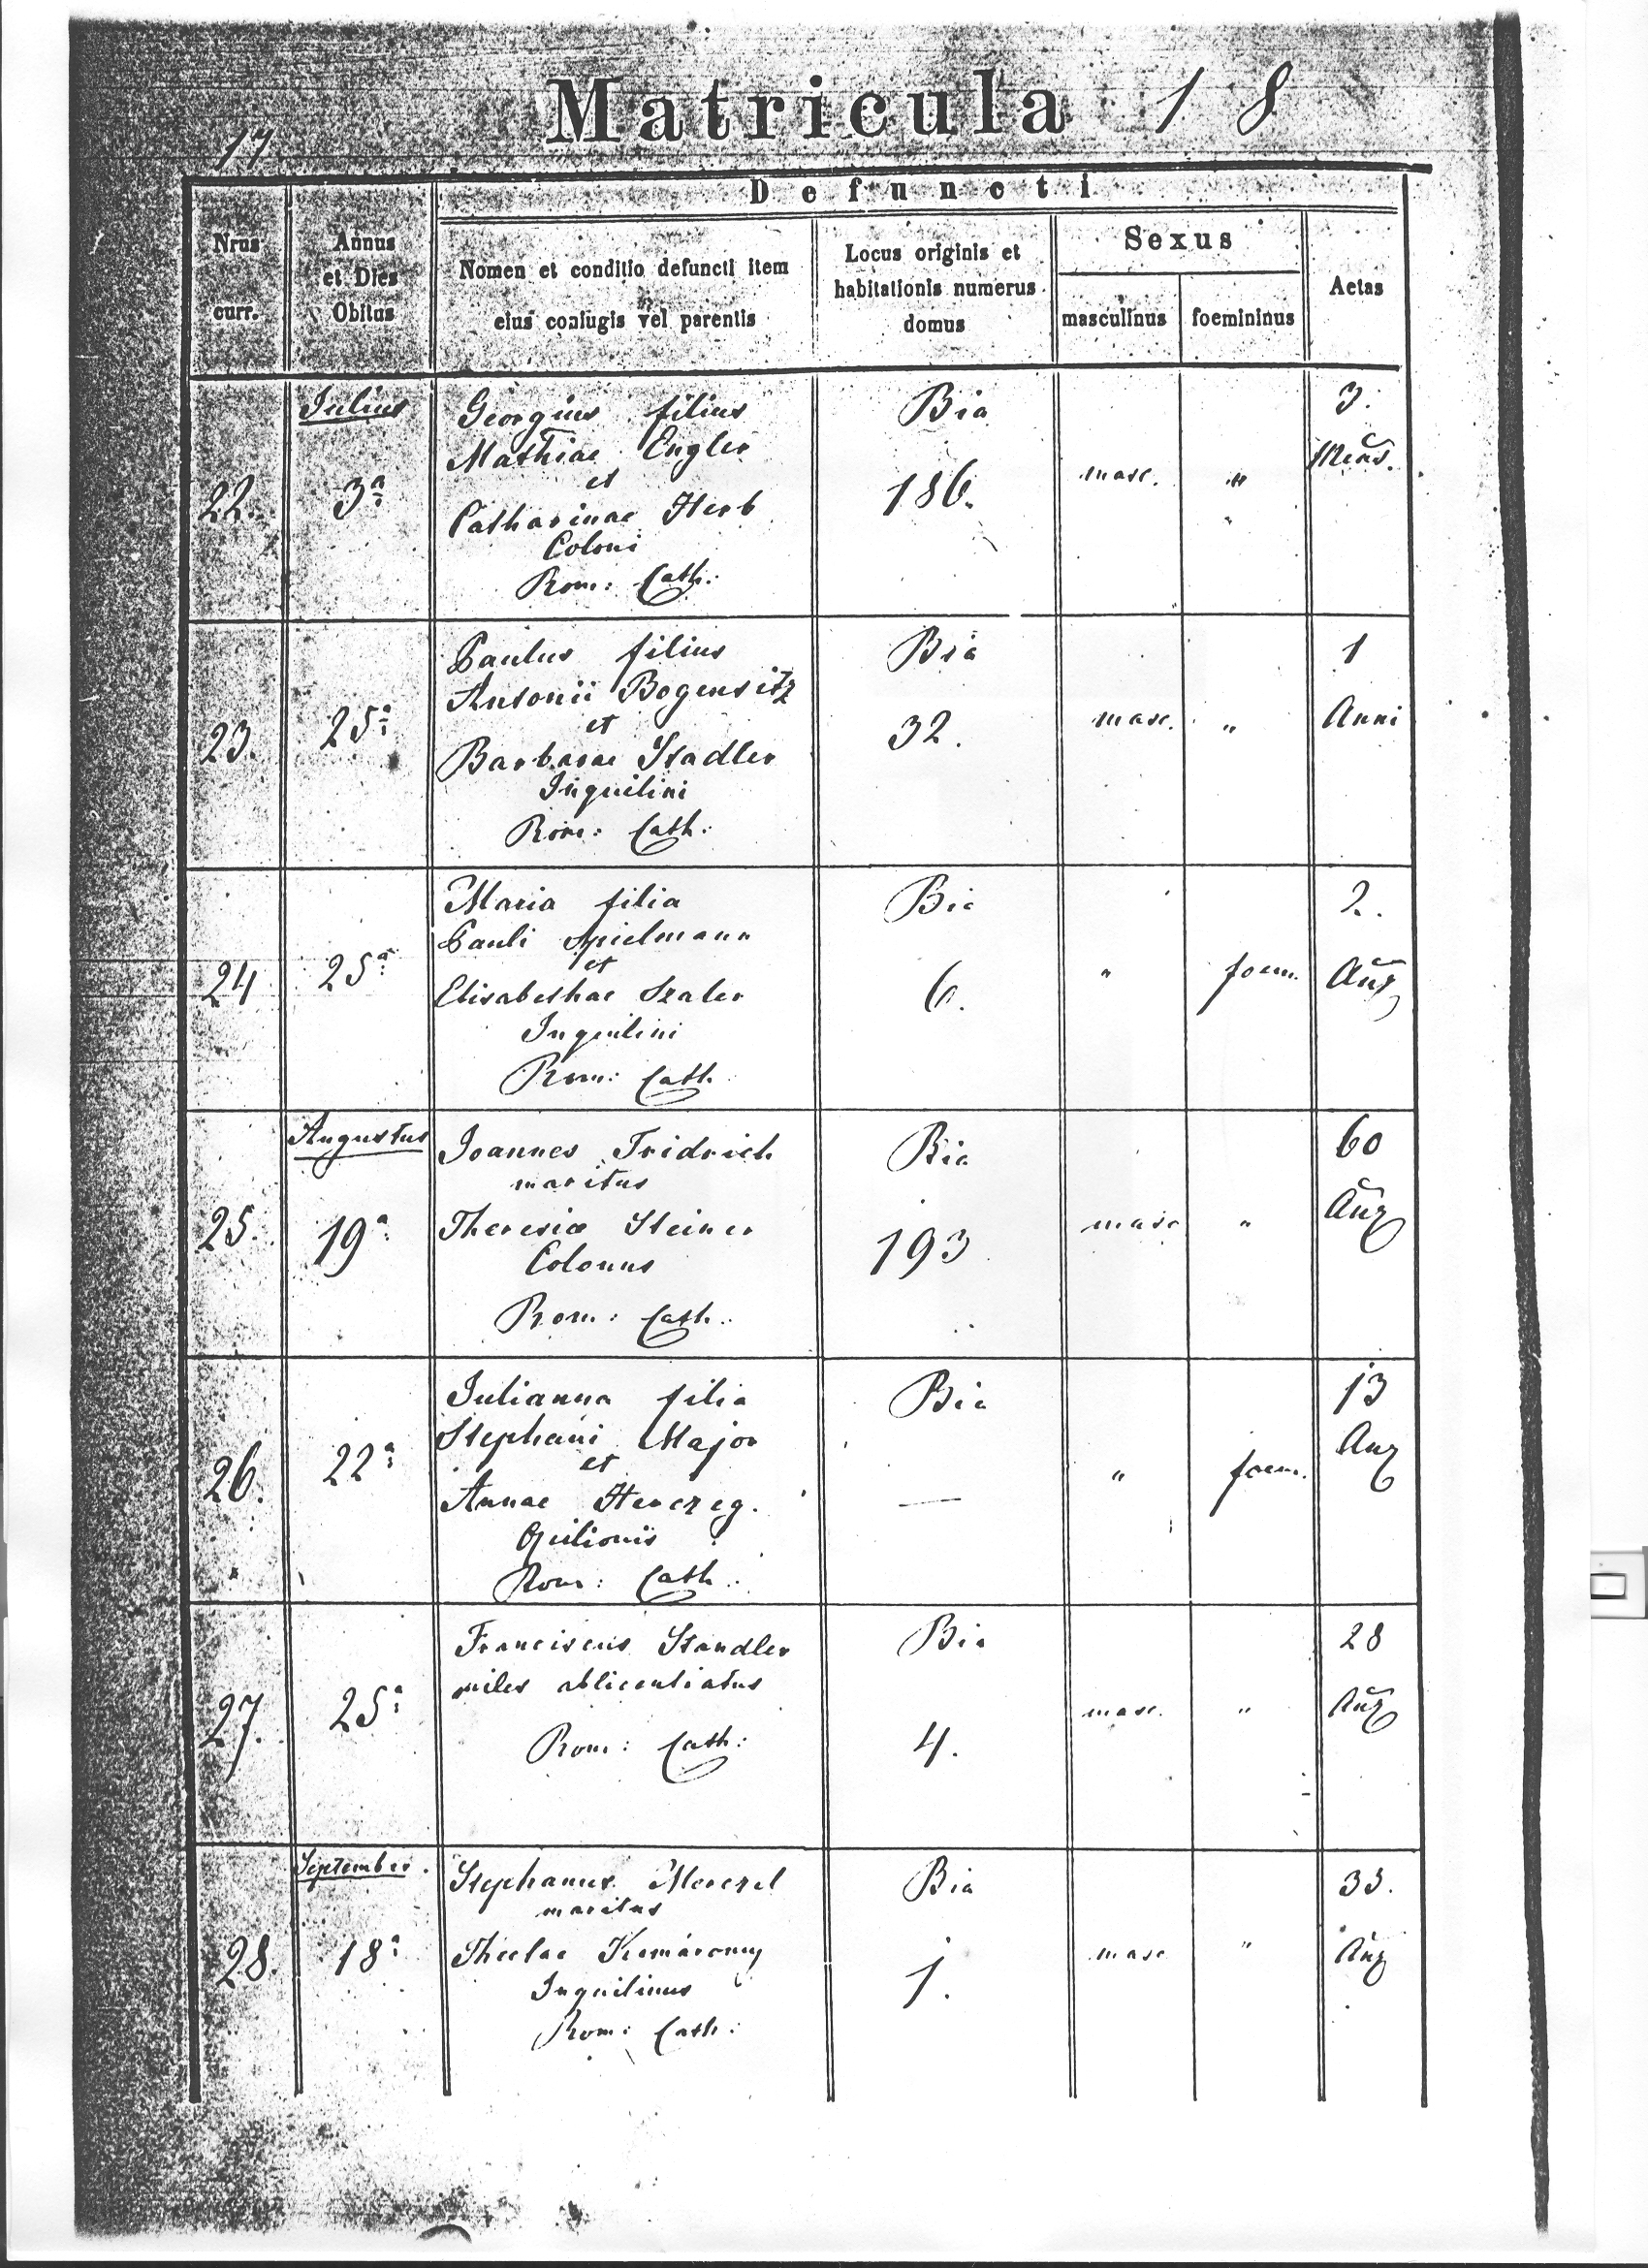 17
Matricula 1 8
Defuncti
Nrus curr.
Annus et Dies Obitus
Nomen et conditio defuncti item
eius coniugis vel parentis
Locus originis et
habitationis numerus
domus
Sexus
masculinus
foemininus
Aetas
Julius
22.
3ª
Georgius filius
Mathiae Engler
et
Catharinae Herb
Coloni
Rom: Cath:
Bia
186.
masc.
"
3.
Mens.
23.
25ª
Paulus filius
Antonii Bogensitz
et
Barbarae Stadler
Inquilini
Rom: Cath:
Bia
32.
masc.
"
1
Anni
24
25ª
Maria filia
Pauli Spielmann
et
Elisabethae Szaler
Inquilini
Rom: Cath
Bia
6.
"
foem.
2.
Augustus
25.
19ª
Joannes Fridrich
maritus
Theresiae Steiner
Colonus
Rom: Cath:
Bia
193
masc
"
60
26.
22ª
Julianna filia
Stephani Major
et
Annae Herczeg.
Opilionis
Rom: Cath:
Bia
—
"
foem.
13
27.
25ª
Franciscus Standler
miles ablicentiatus
Rom: Cath:
Bia
4.
masc.
"
28
September.
28.
18ª
Stephanus
maritus
Theclae Kumáromy
Inquilinus
Rom: Cath:
Bia
1.
masc
"
33.